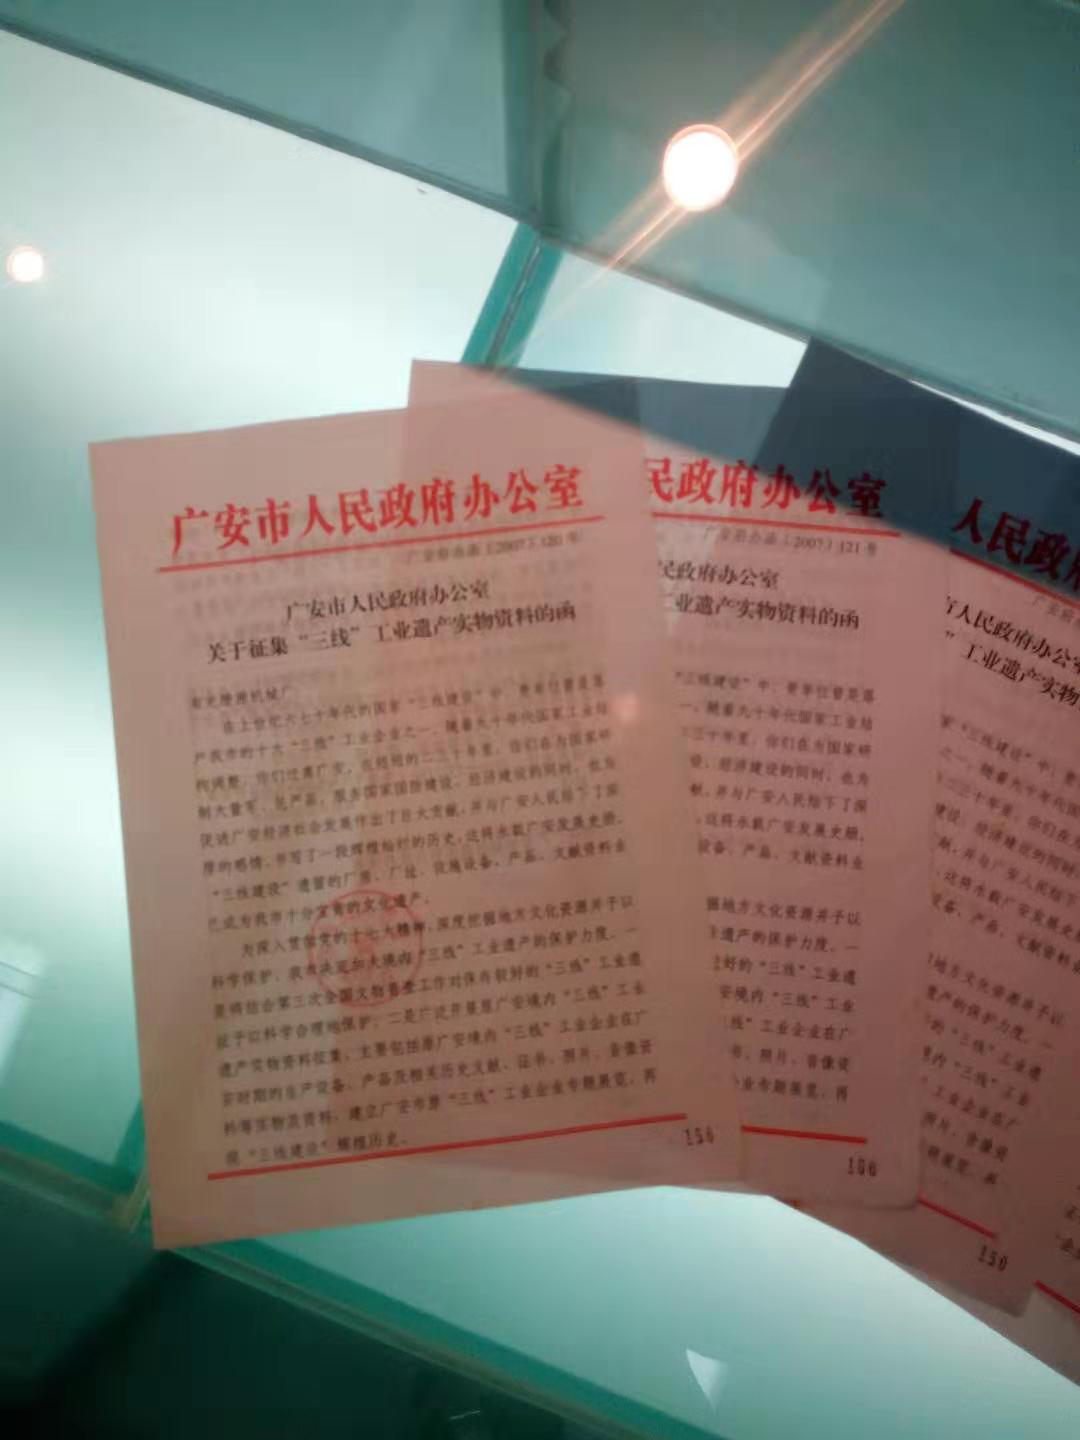 广安市人民政府办公室
广安府办函〔2007〕120号
广安市人民政府办公室
关于征集“三线”工业遗产实物资料的函
在上世纪六七十年代的国家“三线建设”中，贵单位曾是落
户我市的十大“三线”工业企业之一，随着九十年代国家工业结
构调整，你们迁离广安，在短短的二三十年里，你们在为国家研
制大量军、民产品，服务国家国防建设、经济建设的同时，也为
促进广安经济社会发展作出了巨大贡献，并与广安人民结下了深
厚的感情，书写了一段辉煌灿烂的历史，这将永载广安发展史册。
“三线建设”遗留的厂房、厂址、设施设备、产品、文献资料业
已成为我市十分宝贵的文化遗产。
为深入贯彻党的十七大精神，深度挖掘地方文化资源并予以
科学保护，我市决定加大境内“三线”工业遗产的保护力度。一
是将结合第三次全国文物普查工作对保存较好的“三线”工业遗
址予以科学合理地保护；二是广泛开展原广安境内“三线”工业
遗产实物资料征集，主要包括原广安境内“三线”工业企业在广
安时期的生产设备、产品及相关历史文献、证书、照片、音像资
料等实物及资料，建立广安市原“三线”工业企业专题展览，再
现“三线建设”辉煌历史。
156
民政府办公室
广安府办函〔2007〕121号
民政府办公室
工业遗产实物资料的函
“三线建设”中，贵单位曾是落
一，随着九十年代国家工业结
二三十年里，你们在为国家研
设、经济建设的同时，也为
献，并与广安人民结下了深
，这将永载广安发展史册。
设备、产品、文献资料业
掘地方文化资源并予以
业遗产的保护力度。一
较好的“三线”工业遗
安境内“三线”工业
三线”工业企业在广
书、照片、音像资
企业专题展览，再
156
人民政府
市人民政府办公室
”工业遗产实物
家“三线建设”中
之一，随着九十年代国
二三十年里，你们在
建设、经济建设的同时
献，并与广安人民结下
，这将永载广安发展史
设备、产品、文献资料
地方文化资源并予以
遗产的保护力度。一
的“三线”工业遗
境内“三线”工业
工业企业在广
照片、音像资
题展览，再
156